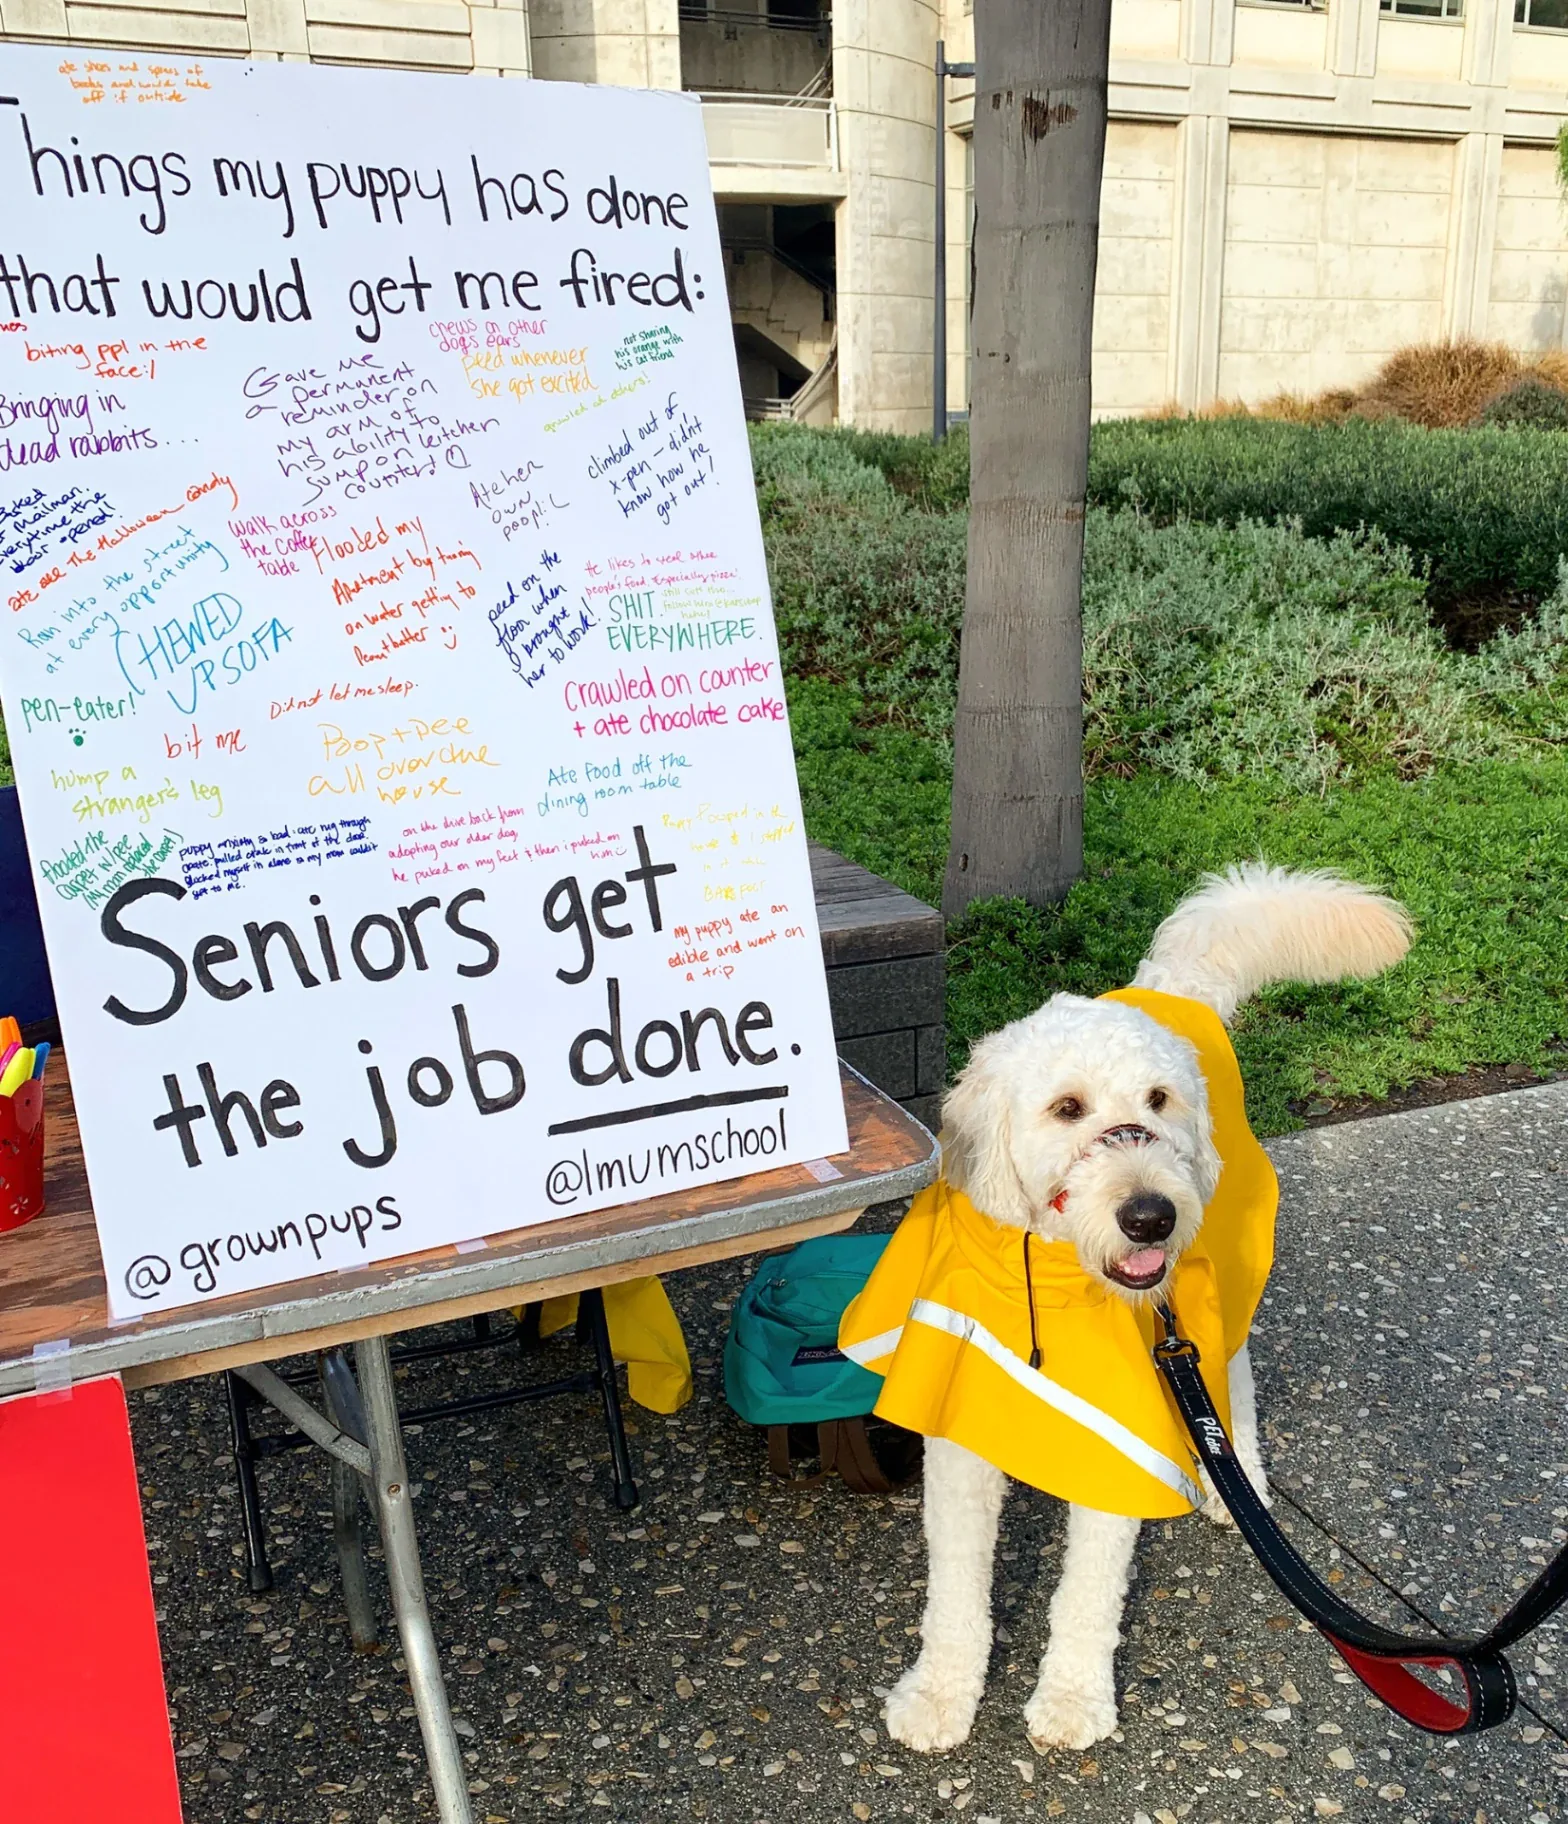 ate shoes and spines of
books and would take
off if outside
Things my puppy has done
that would get me fired:
biting ppl in the
face :/
Bringing in
dead rabbits...
Gave me
a permanent
reminder on
my arm of
his ability to
jump on kitchen
counters!
chews on other
dogs ears
peed whenever
she got excited
not sharing
his orange with
his cat friend
growled at others!
climbed out of
x-pen - didn't
know how he
got out!
Ate her
own
poop! :(
Barked
at mailman
everytime the
door opened!
ate all the Halloween candy
Ran into the street
at every opportunity
walk across
the coffee
table
Flooded my
Apartment by turning
on water getting to
Peanut butter :)
peed on the
floor when
I brought
her to work!
He likes to steal other
people's food. Especially pizza!
still cute tho...
SHIT
EVERYWHERE.
CHEWED
UP SOFA
pen-eater!
bit me
Did not let me sleep.
Crawled on counter
+ ate chocolate cake
Poop + pee
all over the
house
hump a
stranger's leg
Ate food off the
dining room table
flooded the
carpet w/ pee
(Mom replaced
the carpet)
puppy anxiety so bad i ate rug through
crate, pulled couch in front of the door
blocked myself in alone so my mom couldn't
get to me.
on the drive back from
adopting our older dog,
he puked on my feet & then i puked on
him :)
Puppy Pooped in the
house & I stepped
in it
BAREFOOT
my puppy ate an
edible and went on
a trip
Seniors get
the job done.
@lmumschool
@grownpups
JANSPORT